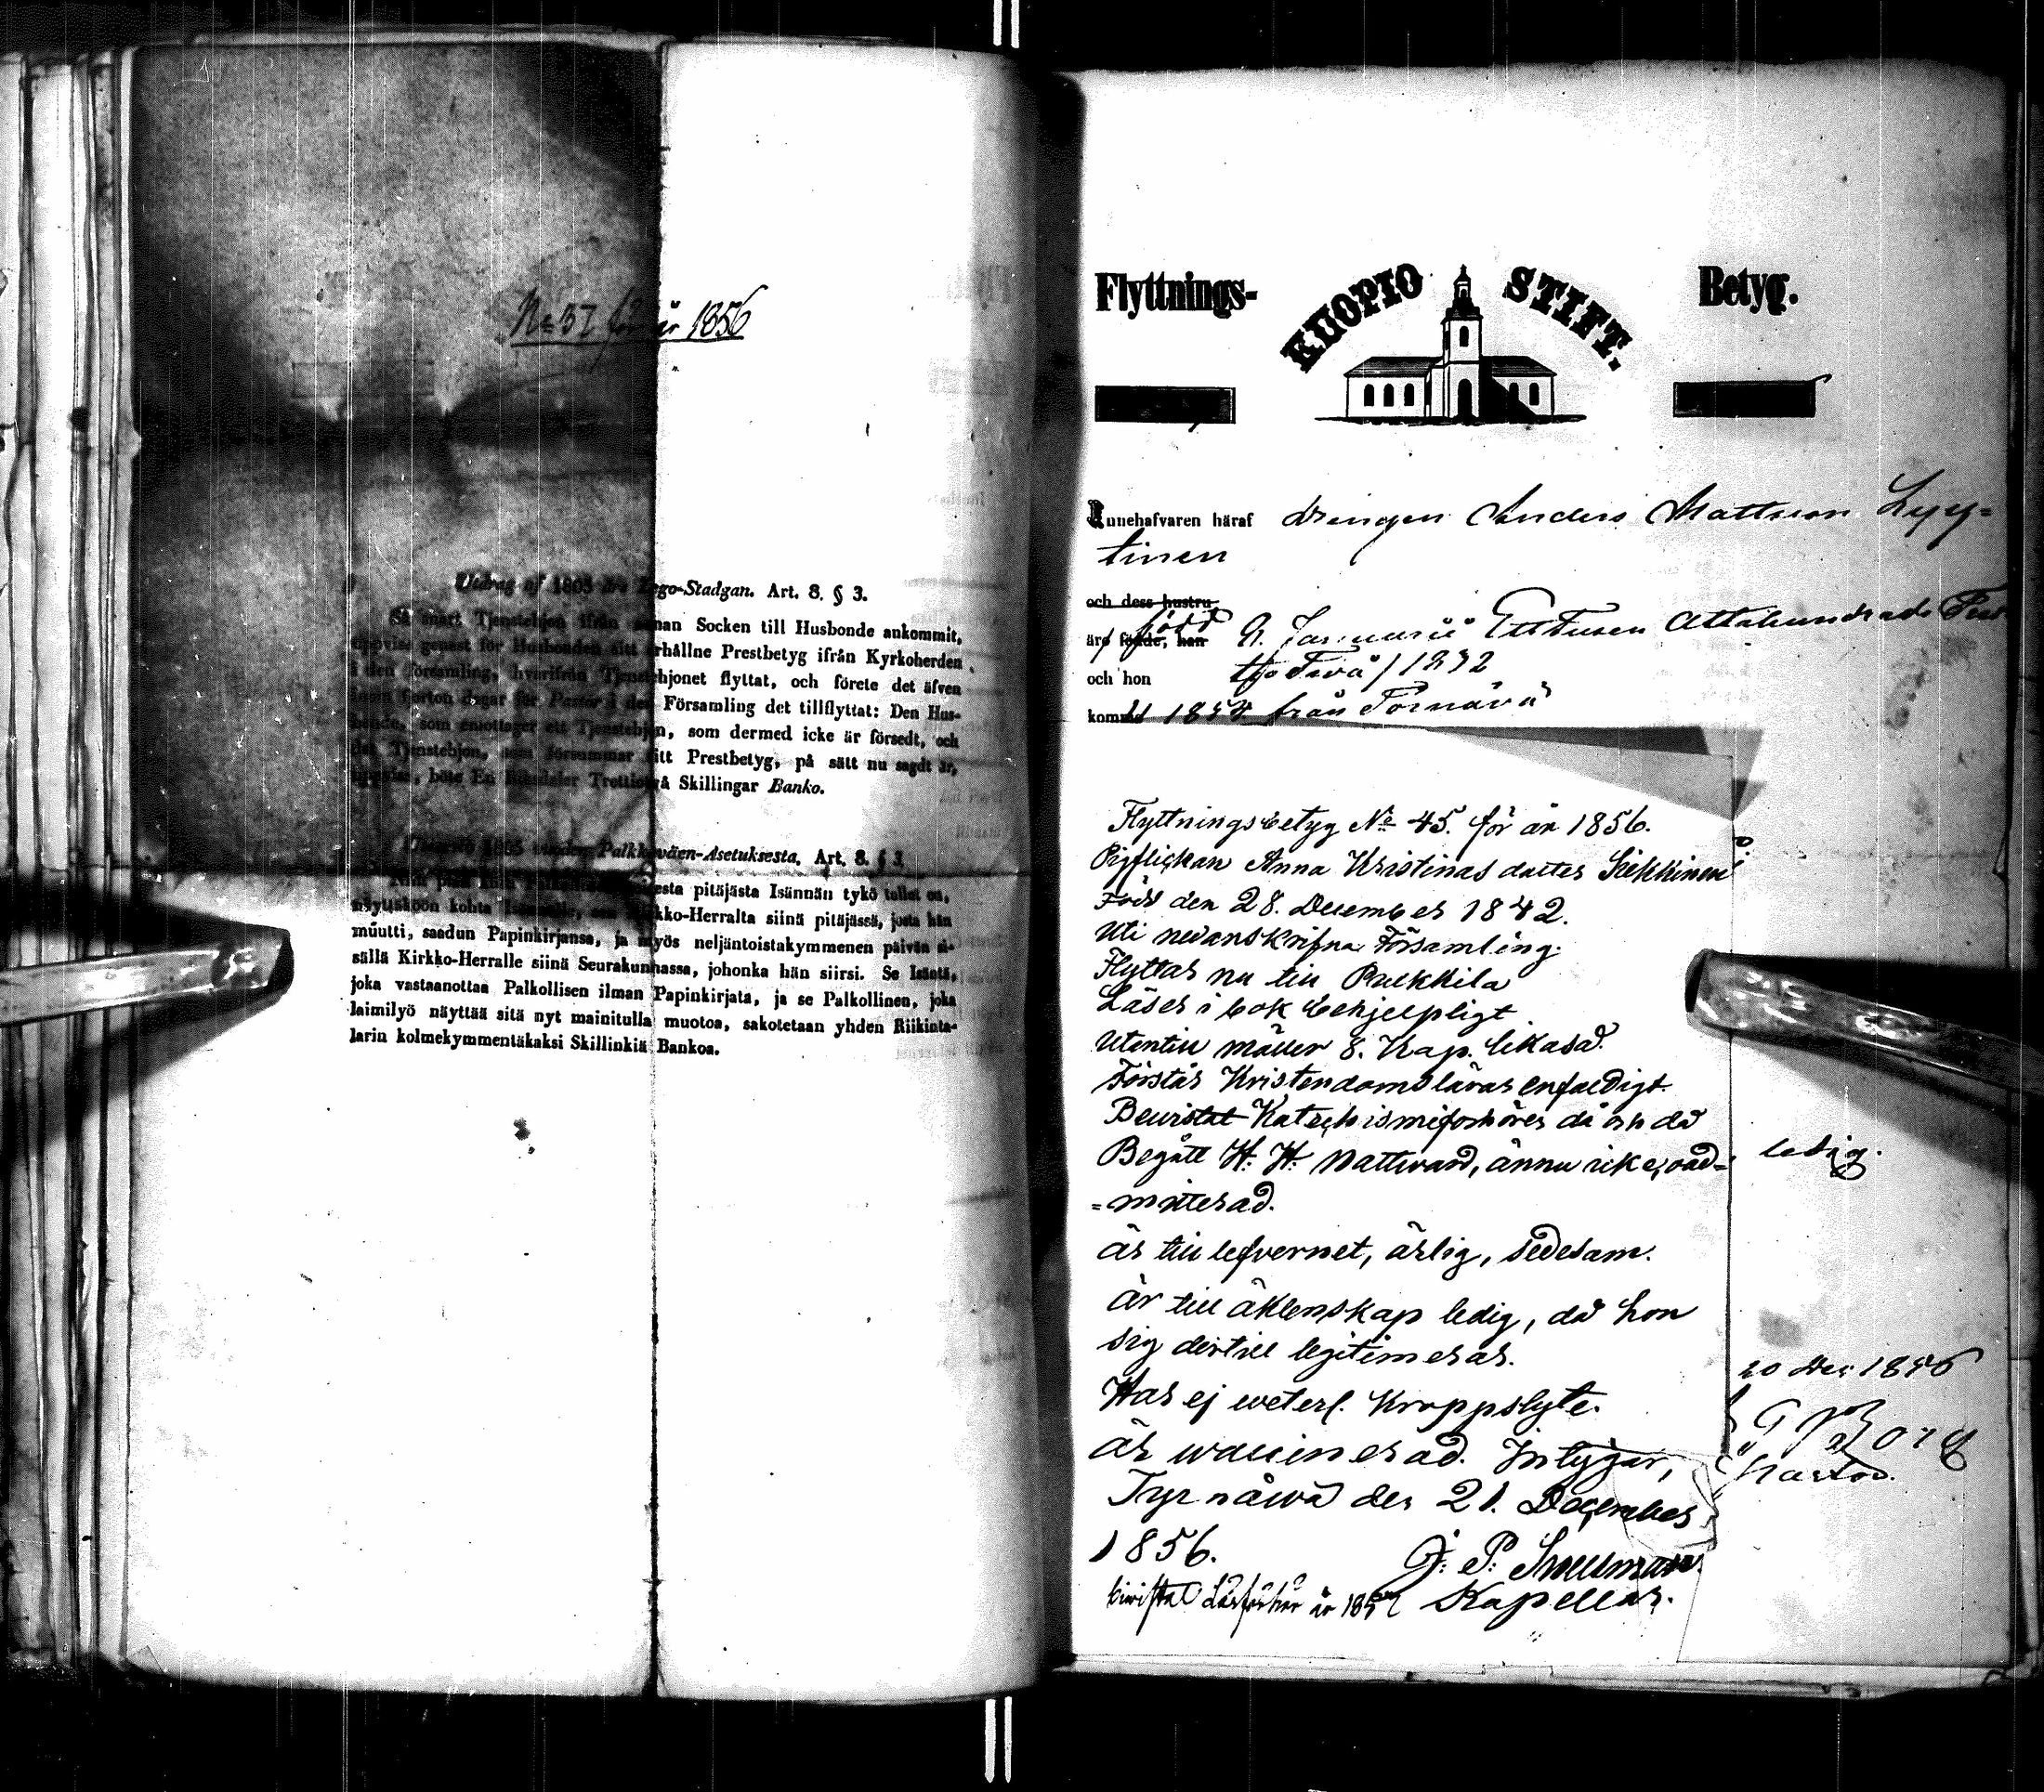 No 37 för år 1856
Utdrag af 1805 års Lego-Stadgan. Art. 8. § 3.
Så snart Tjenstehjon ifrån annan Socken till Husbonde ankommit,
uppvise genast för Husbonden sitt erhållne Prestbetyg ifrån Kyrkoherden
i den församling, hvarifrån Tjenstehjonet flyttat, och förete det äfven
inom fjorton dagar för Pastor i den Församling det tillflyttat: Den Hus-
bonde, som emottager ett Tjenstehjon, som dermed icke är försedt, och
det Tjenstehjon, som försummar sitt Prestbetyg, på sätt nu sagdt är,
uppvisa, böte En Riksdaler Trettiotvå Skillingar Banko.
1805 vuoden Palkkaväen-Asetuksesta. Art. 8. § 3.
pitäjästä Isännän tykö tullut on,
näyttäköön kohta Isännälle, sen Kirkko-Herralta siinä pitäjässä, josta hän
muutti, saadun Papinkirjansa, ja myös neljäntoistakymmenen päivän si-
sällä Kirkko-Herralle siinä Seurakunnassa, johonka hän siirsi. Se Isäntä,
joka vastaanottaa Palkollisen ilman Papinkirjata, ja se Palkollinen, joka
laimilyö näyttää sitä nyt mainitulla muotoa, sakotetaan yhden Riikinta-
larin kolmekymmentäkaksi Skillinkiä Bankoa.
Flyttnings- KUOPIO STIFT. Betyg.
Innehafvaren häraf drengen Anders Mattsson Lyy-
tinen
och dess hustru
äro födde, han född Januarii Ett Tusen Attahundrade
och hon Två / 1832
kommit 1854 från
Flyttningsbetyg No 45. för år 1856.
Pigflickan Anna Kristinas dotter
Född den 28. December 1842.
Uti nedanskrifna Församling.
Flyttar nu till Pulkkila
Läser i bok behjelpligt
Utentill måller 8. Kap. likaså.
Förstår Kristendoms läran enfaldigt.
Bevistat Katechismiförhören då och då
Begått H. H. Nattvard, ännu icke, oad-
=mitterad.
ledig.
är till lefvernet, ärlig, sedesam.
är till äktenskap ledig, då hon
sig dertill legitimerar.
Har ej veterl. Kroppslyte.
är vaccinerad. Intygar,
Tyrnäwä den 21. December
1856.
J. P. Snellman.
Kapellan.
20 Dec 1856
Borg
Pastor.